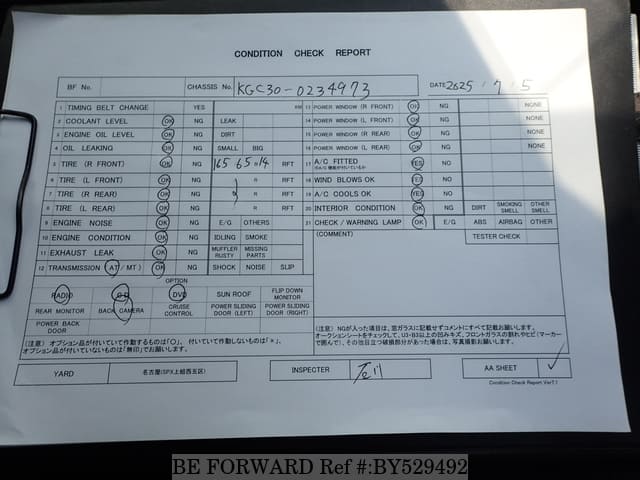 CONDITION CHECK REPORT
BF No. CHASSIS No. KGC30-0234973 DATE 2025 / 7 / 5
1 TIMING BELT CHANGE YES KM
2 COOLANT LEVEL OK NG LEAK
3 ENGINE OIL LEVEL OK NG DIRT
4 OIL LEAKING OK NG SMALL BIG
5 TIRE (R FRONT) OK NG 165 65 R 14 RFT
6 TIRE (L FRONT) OK NG R RFT
7 TIRE (R REAR) OK NG R RFT
8 TIRE (L REAR) OK NG R RFT
9 ENGINE NOISE OK NG E/G OTHERS
10 ENGINE CONDITION OK NG IDLING SMOKE
11 EXHAUST LEAK OK NG MUFFLER RUSTY MISSING PARTS
12 TRANSMISSION (AT / MT) OK NG SHOCK NOISE SLIP
13 POWER WINDOW (R FRONT) OK NG NONE
14 POWER WINDOW (L FRONT) OK NG NONE
15 POWER WINDOW (R REAR) OK NG NONE
16 POWER WINDOW (L REAR) OK NG NONE
17 A/C FITTED YES NO
18 WIND BLOWS OK YES NO
19 A/C COOLS OK YES NO
20 INTERIOR CONDITION OK NG DIRT SMOKING SMELL OTHER SMELL
21 CHECK / WARNING LAMP OK E/G ABS AIRBAG OTHER
(COMMENT) TESTER CHECK
OPTION
RADIO CD DVD SUN ROOF FLIP DOWN MONITOR
REAR MONITOR BACK CAMERA CRUISE CONTROL POWER SLIDING DOOR (LEFT) POWER SLIDING DOOR (RIGHT)
POWER BACK DOOR
(注意) オプション品が付いていて作動するものは「〇」、付いていて作動しないものは「×」、
オプション品が付いていないものは「無印」でお願いします。
(注意) NGが入った項目は、窓ガラスに記載せずコメントにすべて記載お願いします。
オークションシートをチェックして、U3・B3以上の凹みキズ、フロントガラスの割れやヒビ(マーカー
で囲んで)、その他目立つ破損部分があった場合は、写真撮影お願いします。
YARD 名古屋(SPX上組西五区) INSPECTER AA SHEET ✓
Condition Check Report Ver7.1
BE FORWARD Ref #:BY529492